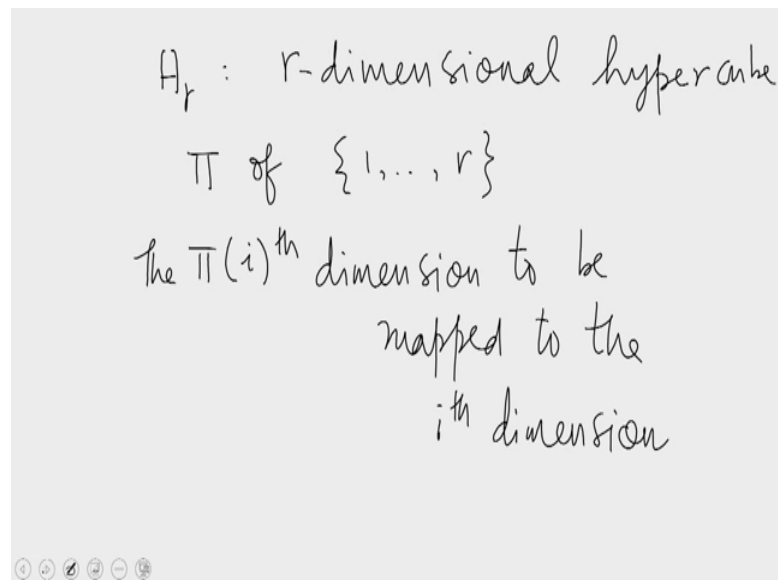 H_r : r-dimensional hypercube
π of {1,..,r}
The π(i)^th dimension to be
mapped to the
i^th dimension